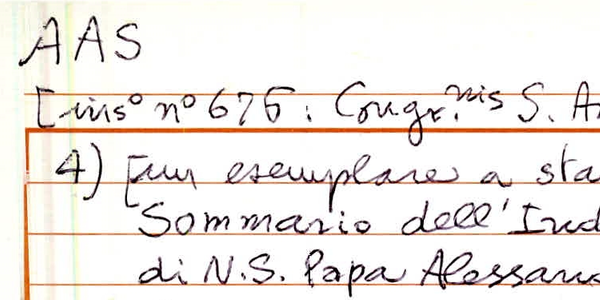 AAS
[ins° n° 675: Congr.nis S. A
4) [un esemplare a sta
Sommario dell'Ind
di N.S. Papa Alessan